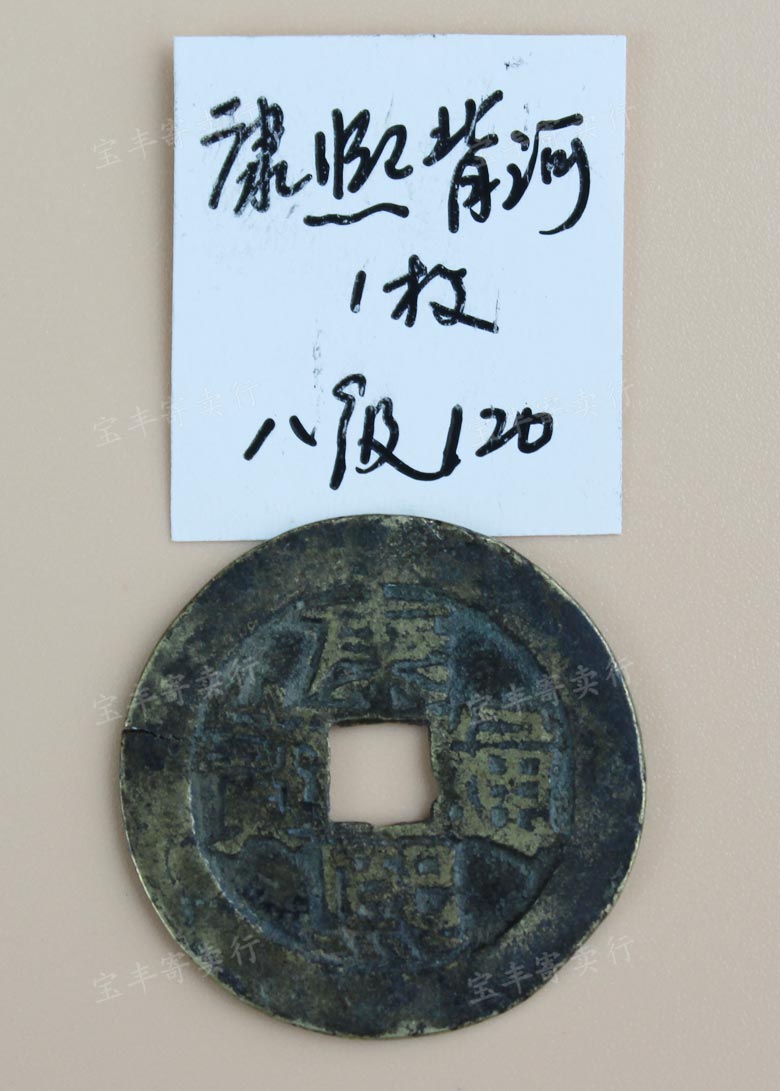 康熙背河
1枚
八级120
康熙通寳
宝丰寄卖行
宝丰寄卖行
宝丰寄卖行
宝丰寄卖行
宝丰寄卖行
宝丰寄卖行
宝丰寄卖行
宝丰寄卖行